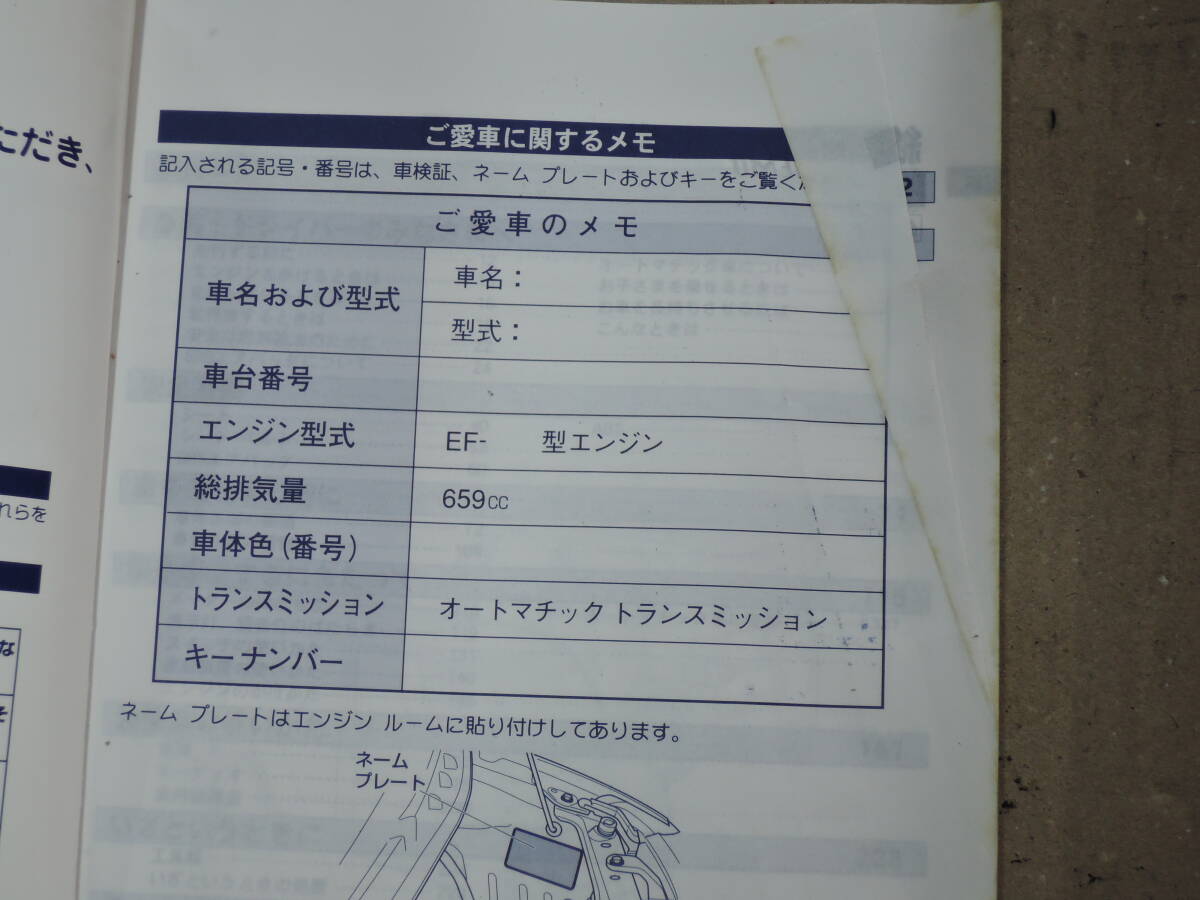 ただき、
れらを
な
そ
ご愛車に関するメモ
記入される記号・番号は、車検証、ネーム プレートおよびキーをご覧くだ
2
ご愛車のメモ
車名および型式
車名：
型式：
車台番号
エンジン型式
EF- 型エンジン
総排気量
659cc
車体色（番号）
トランスミッション
オートマチック トランスミッション
キー ナンバー
ネーム プレートはエンジン ルームに貼り付けしてあります。
ネーム
プレート